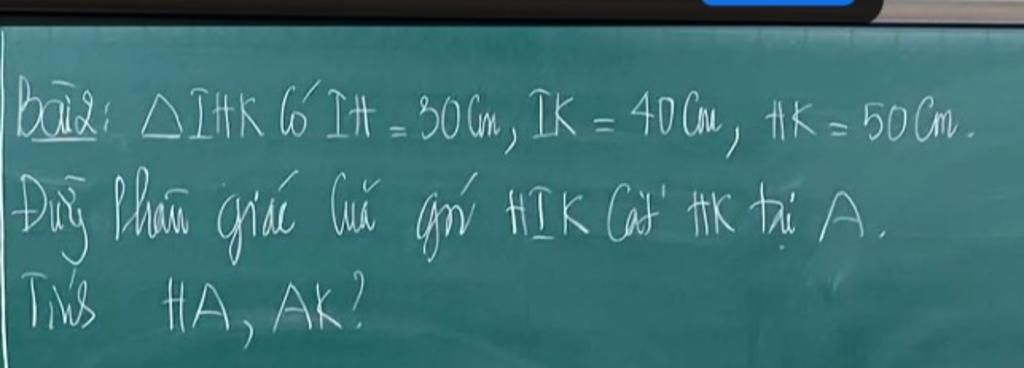 Bài 2: △IHK có IH = 30cm, IK = 40cm, HK = 50cm.
Đường phân giác của góc HIK cắt HK tại A.
Tính HA, AK?